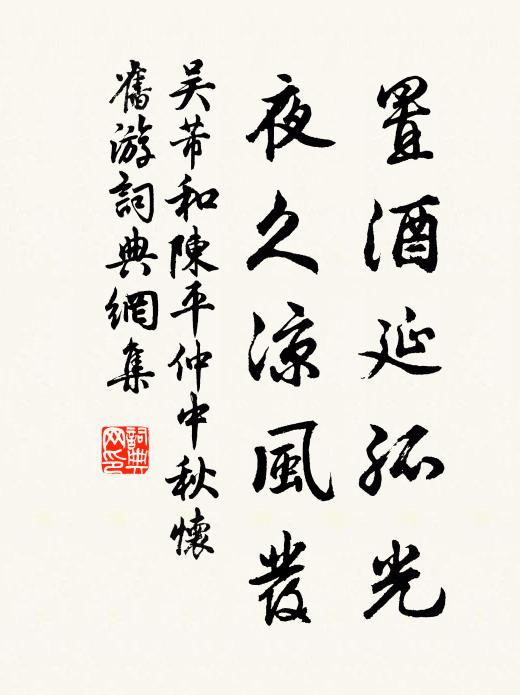 置酒延孤光
夜久凉風發
吴芾和陳平仲中秋懷
舊游詞典網集
詞典
网印